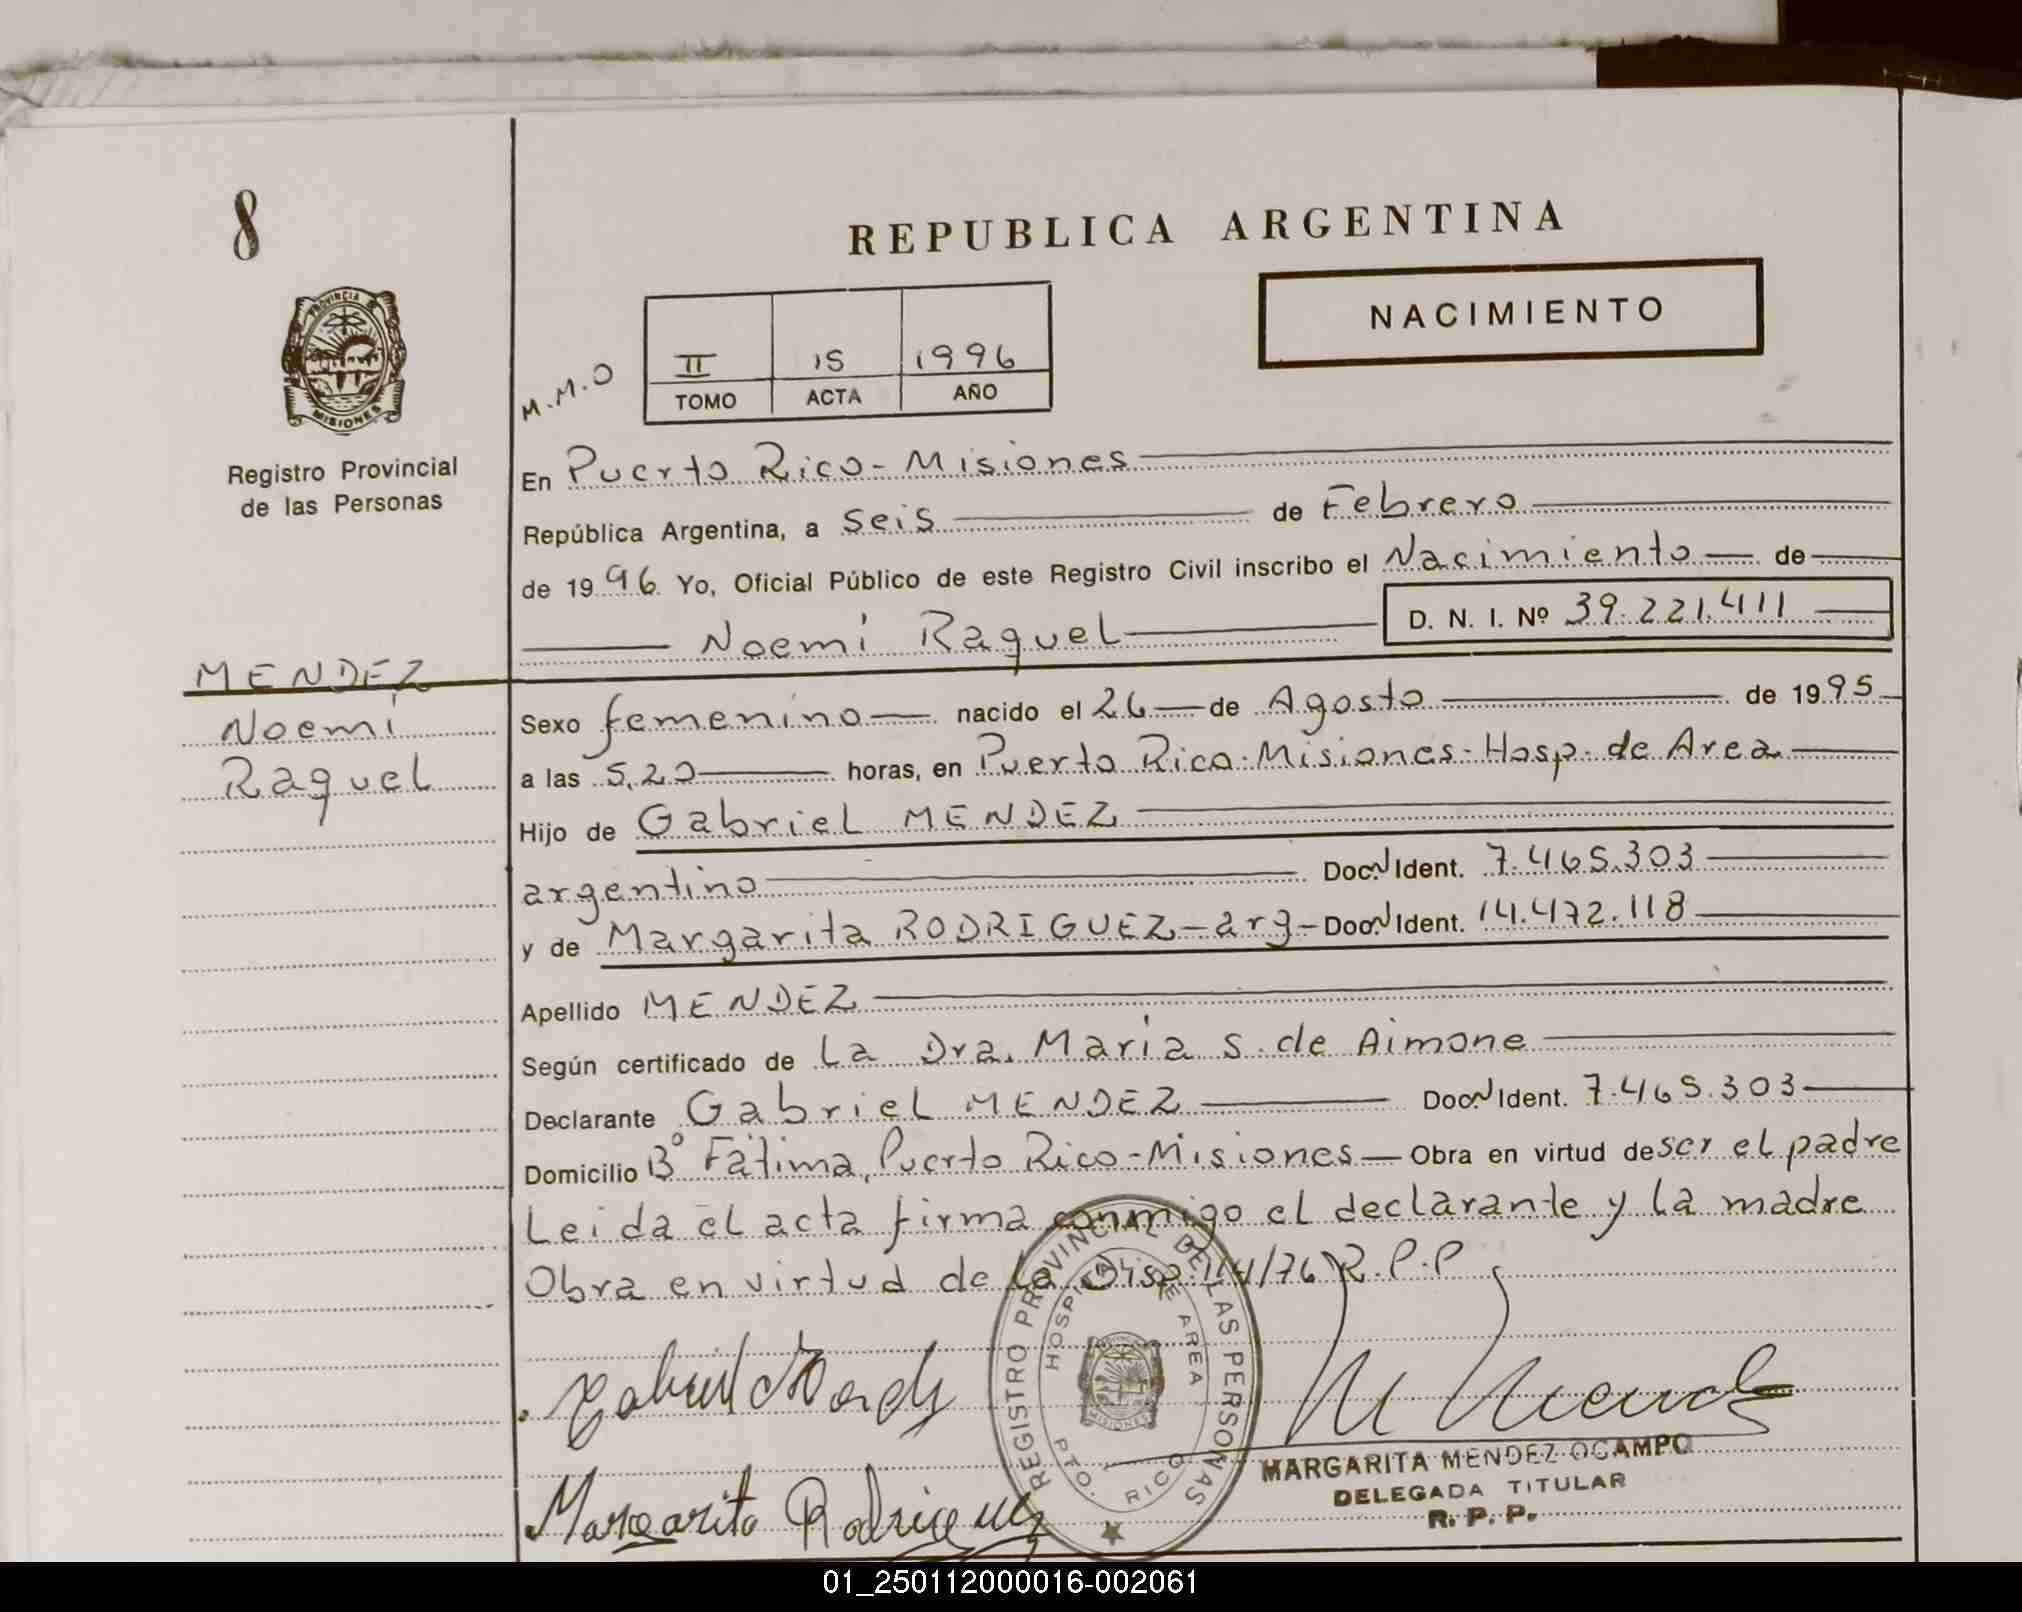 8
REPUBLICA ARGENTINA
NACIMIENTO
PROVINCIA DE
MISIONES
Registro Provincial
de las Personas
M.M.O
II 15 1996
TOMO ACTA AÑO
En Puerto Rico - Misiones
República Argentina, a seis de Febrero
de 1996. Yo, Oficial Público de este Registro Civil inscribo el Nacimiento de
Noemi Raquel D. N. I. Nº 39.221.411
MENDEZ
Noemi
Raquel
Sexo femenino nacido el 26 de Agosto de 1995
a las 5,20 horas, en Puerto Rico-Misiones-Hosp. de Area
Hijo de Gabriel MENDEZ
argentino Doc.N Ident. 7.465.303
y de Margarita RODRIGUEZ - arg - Doc.N Ident. 14.472.118
Apellido MENDEZ
Según certificado de la Dra. Maria S. de Aimone
Declarante Gabriel MENDEZ Doc.N Ident. 7.465.303
Domicilio Bº Fátima, Puerto Rico - Misiones - Obra en virtud de ser el padre
Leida el acta firma conmigo el declarante y la madre
Obra en virtud de la Disp. 114/76 R.P.P
REGISTRO PROVINCIAL DE LAS PERSONAS
HOSPITAL DE AREA
PTO. RICO
MISIONES
Margarita Rodriguez
MARGARITA MENDEZ OCAMPO
DELEGADA TITULAR
R. P. P.
01_250112000016-002061